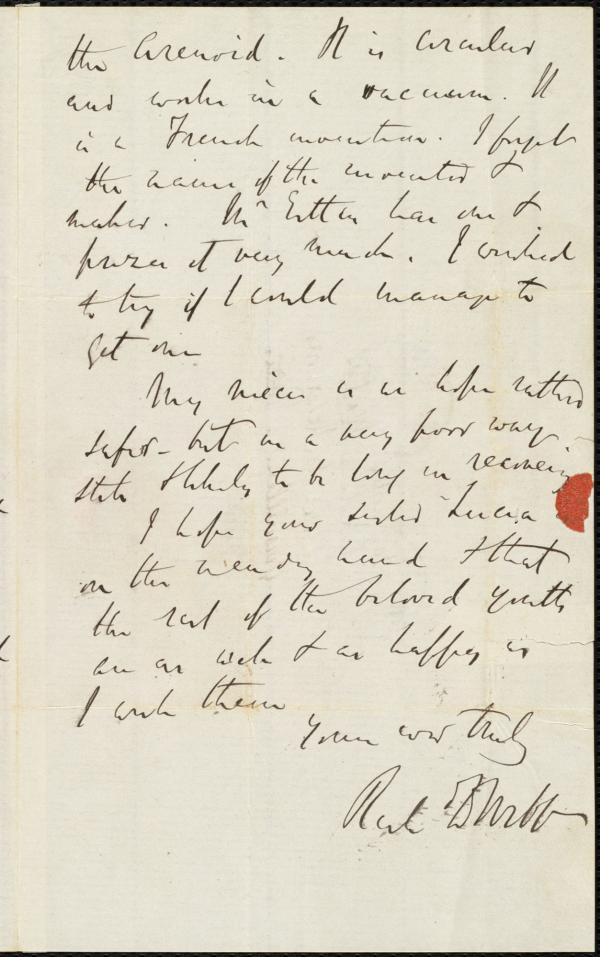 the Arenoid. It is circular
and works in a vacuum. It
is a French invention. I forget
the name of the inventor &
maker. Mr has one &
prizes it very much. I wished
to try if I could manage to
get one
My niece is we hope rather
safer - but in a very poor way
state & likely to be long in recovering
I hope your sister Lucia
on the mending hand & that
the rest of the beloved youths
are as well & as happy as
I wish them
Yours ever truly
Rich D Webb